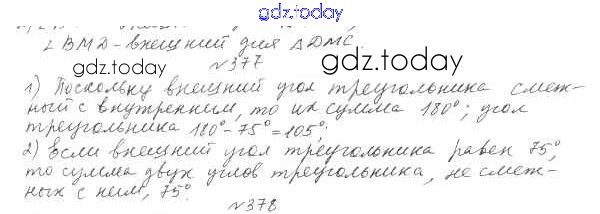 gdz.today
∠BMD - внешний для ΔDMC
gdz.today
№377
1) Поскольку внешний угол треугольника смеж-
ный с внутренним, то их сумма 180°; угол
треугольника 180° - 75° = 105°;
2) Если внешний угол треугольника равен 75°,
то сумма двух углов треугольника, не смеж-
ных с ним, 75°.
gdz.today
gdz.today
№378